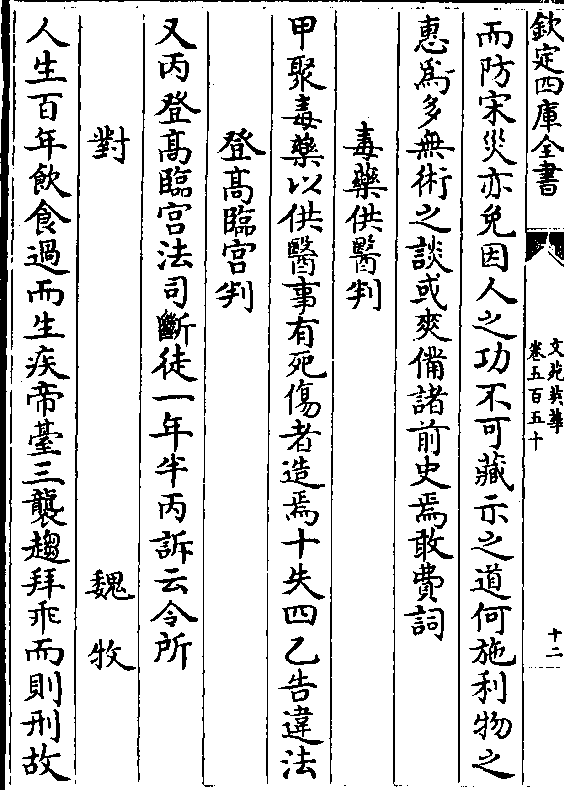 欽定四庫全書
文苑英華
卷五百五十
十二
而防宋災亦免因人之功不可藏示之道何施利物之
惠爲多無術之談或爽備諸前史焉敢費詞
毒藥供醫判
甲聚毒藥以供醫事有死傷者造焉十失四乙告違法
登高臨宮判
又丙登高臨宮法司斷徒一年半丙訴云令所
對 魏牧
人生百年飲食過而生疾帝臺三襲趨拜乖而則刑故